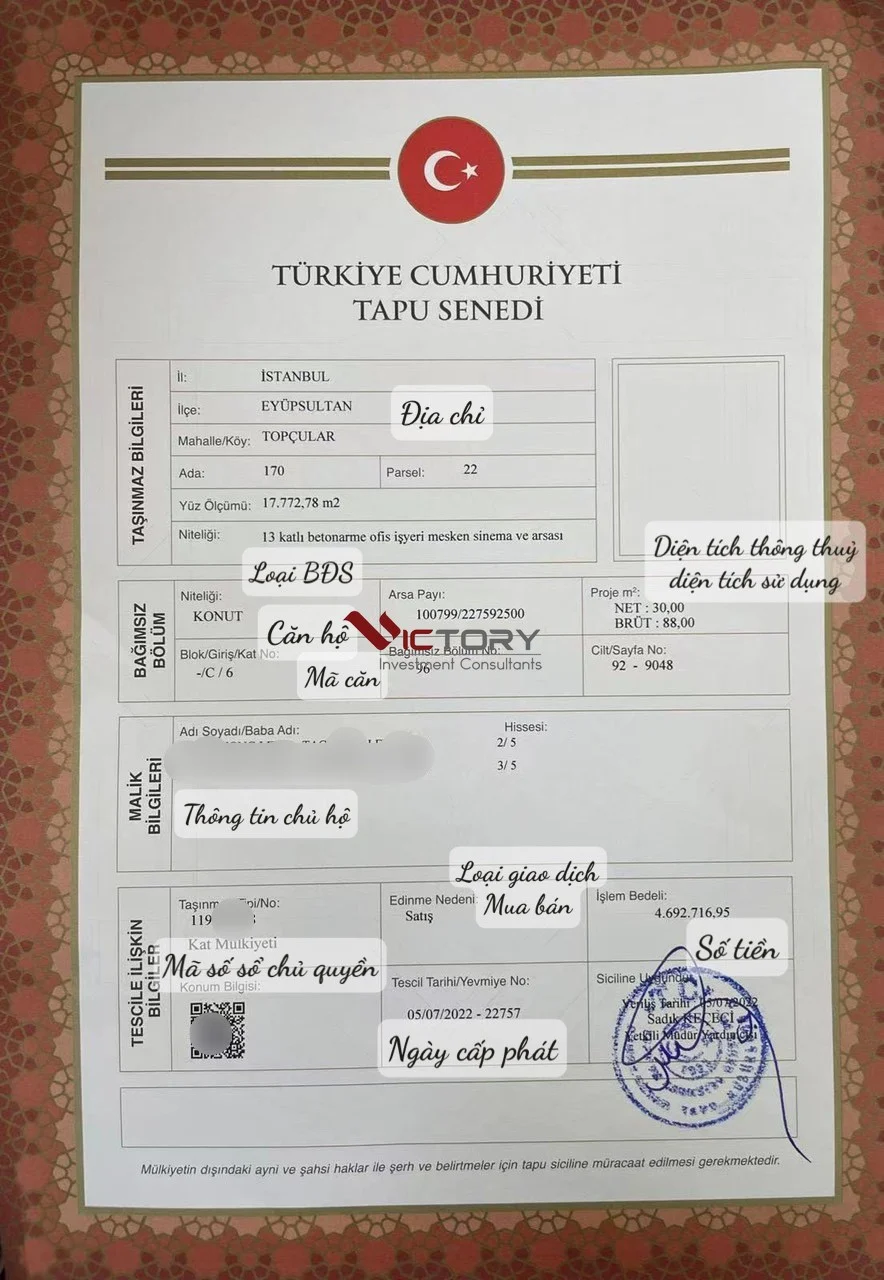 TÜRKİYE CUMHURİYETİ
TAPU SENEDİ
TAŞINMAZ BİLGİLERİ
İl: İSTANBUL
İlçe: EYÜPSULTAN
Địa chỉ
Mahalle/Köy: TOPÇULAR
Ada: 170 Parsel: 22
Yüz Ölçümü: 17.772,78 m2
Niteliği: 13 katlı betonarme ofis işyeri mesken sinema ve arsası
Diện tích thông thuỷ
diện tích sử dụng
Loại BĐS
BAĞIMSIZ
BÖLÜM
Niteliği:
KONUT
Căn hộ
Arsa Payı:
100799/227592500
Proje m²:
NET : 30,00
BRÜT : 88,00
VICTORY
Investment Consultants
Blok/Giriş/Kat No:
-/C / 6
Mã căn
Bağımsız Bölüm No:
96
Cilt/Sayfa No:
92 - 9048
MALİK
BİLGİLERİ
Adı Soyadı/Baba Adı:
Hissesi:
2/ 5
3/ 5
Thông tin chủ hộ
TESCİLE İLİŞKİN
BİLGİLER
Loại giao dịch
Mua bán
No:
119
Kat Mülkiyeti
Mã số sổ chủ quyền
Konum Bilgisi:
Edinme Nedeni:
Satış
İşlem Bedeli:
4.692.716,95
Số tiền
Tescil Tarihi/Yevmiye No:
05/07/2022 - 22757
Ngày cấp phát
Siciline Uygundur
Veriliş Tarihi : 05/07/2022
Sadık KEÇECİ
Yetkili Müdür Yardımcısı
Mülkiyetin dışındaki ayni ve şahsi haklar ile şerh ve belirtmeler için tapu siciline müracaat edilmesi gerekmektedir.